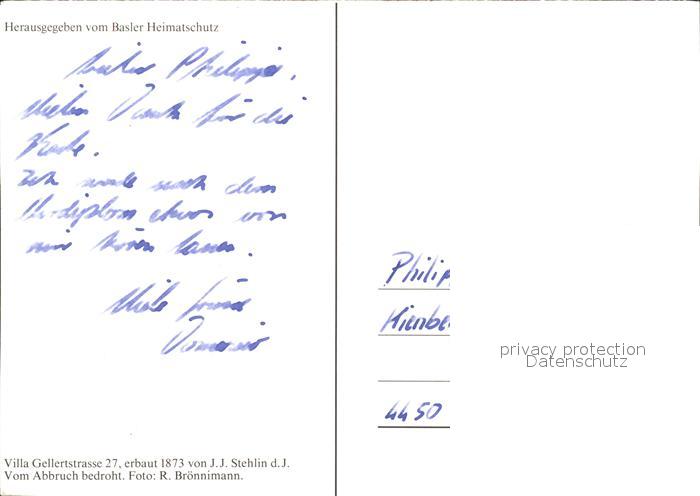 Herausgegeben vom Basler Heimatschutz
Lieber Philippe,
Vielen Dank für die
Karte.
Ich werde nach dem
Vordiplom etwas von
mir hören lassen.
Viele Grüsse
Philip
Kienbe
privacy protection
Datenschutz
4450
Villa Gellertstrasse 27, erbaut 1873 von J. J. Stehlin d. J.
Vom Abbruch bedroht. Foto: R. Brönnimann.